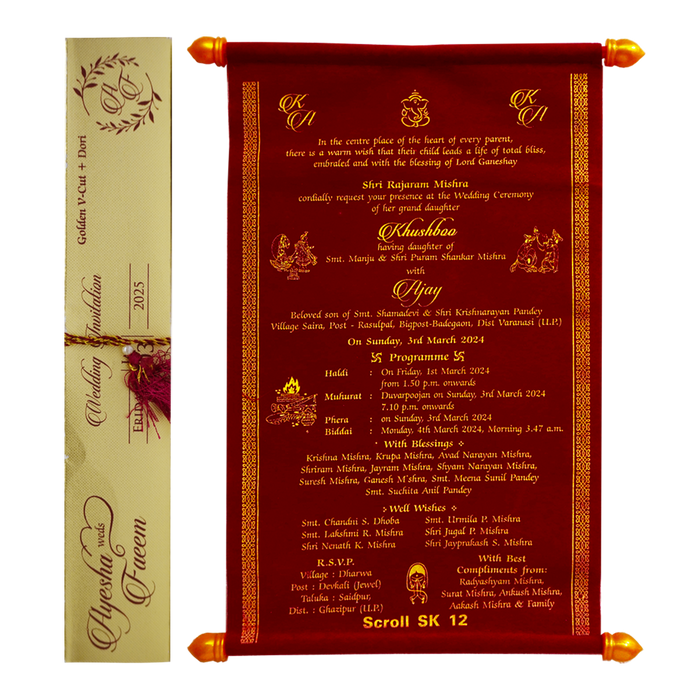 A F
Golden V-Cut + Dori
Wedding Invitation
2025
Ayesha
weds
Faeem
K
A
K
A
In the centre place of the heart of every parent,
there is a warm wish that their child leads a life of total bliss,
embraled and with the blessing of Lord Ganeshay
Shri Rajaram Mishra
cordially request your presence at the Wedding Ceremony
of her grand daughter
Khushboo
having daughter of
Smt. Manju & Shri Puram Shankar Mishra
with
Ajay
Beloved son of Smt. Shamadevi & Shri Krishnarayan Pandey
Village Saira, Post - Rasulpal, Bigpost-Badegaon, Dist Varanasi (U.P.)
On Sunday, 3rd March 2024
卐 Programme 卐
Haldi : On Friday, 1st March 2024
from 1.50 p.m. onwards
Muhurat : Duvarpoojan on Sunday, 3rd March 2024
7.10 p.m. onwards
Phera : on Sunday, 3rd March 2024
Biddai : Monday, 4th March 2024, Morning 3.47 a.m.
With Blessings
Krishna Mishra, Krupa Mishra, Avad Narayan Mishra,
Shriram Mishra, Jayram Mishra, Shyam Narayan Mishra,
Suresh Mishra, Ganesh M'shra, Smt. Meena Sunil Pandey
Smt. Suchita Anil Pandey
Well Wishes
Smt. Chandni S. Dhoba Smt. Urmila P. Mishra
Smt. Lakshmi R. Mishra Shri Jugal P. Mishra
Shri Nenath K. Mishra Shri Jayprakash S. Mishra
R.S.V.P.
Village : Dharwa
Post : Devkali (Jewel)
Taluka : Saidpur,
Dist. : Ghazipur (U.P.)
With Best
Compliments from:
Radyashyam Mishra,
Surat Mishra, Ankush Mishra,
Aakash Mishra & Family
Scroll SK 12